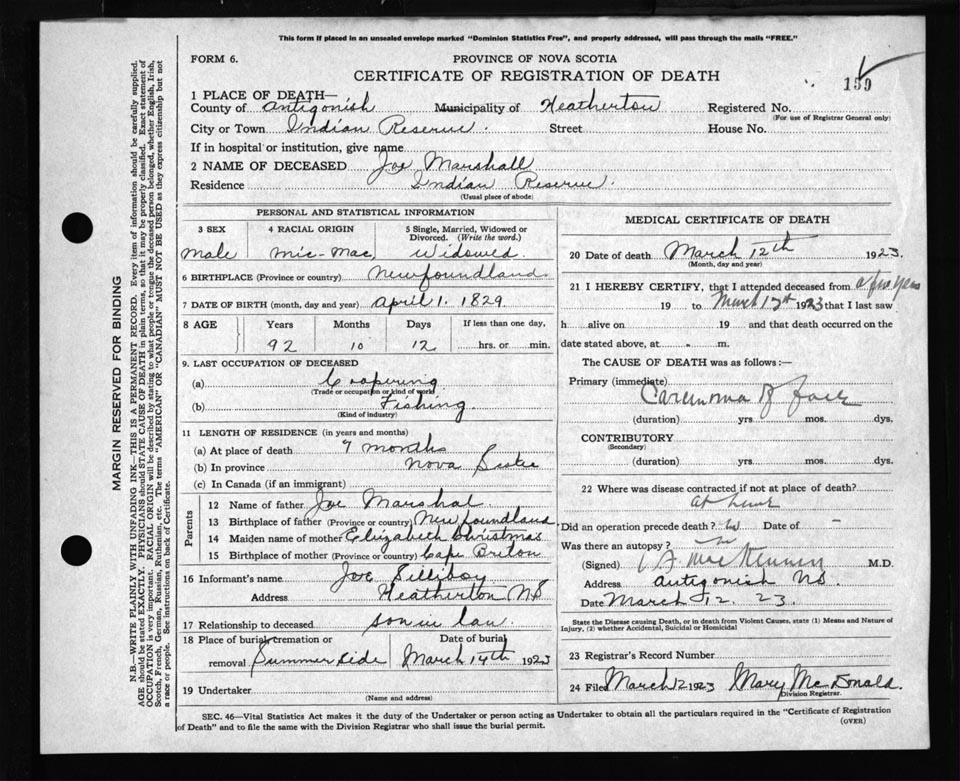 This form if placed in an unsealed envelope marked "Dominion Statistics Free", and properly addressed, will pass through the mails "FREE."
FORM 6.
PROVINCE OF NOVA SCOTIA
CERTIFICATE OF REGISTRATION OF DEATH
159
1 PLACE OF DEATH—
County of Antigonish Municipality of Heatherton Registered No.
(For use of Registrar General only)
City or Town Indian Reserve. Street House No.
If in hospital or institution, give name
2 NAME OF DECEASED Joe Marshall
Residence Indian Reserve.
(Usual place of abode)
PERSONAL AND STATISTICAL INFORMATION
3 SEX
Male
4 RACIAL ORIGIN
Mic-Mac,
5 Single, Married, Widowed or Divorced. (Write the word.)
Widowed
6 BIRTHPLACE (Province or country) Newfoundland
7 DATE OF BIRTH (month, day and year) April 1. 1829.
8 AGE Years Months Days If less than one day,
92 10 12 hrs. or min.
9. LAST OCCUPATION OF DECEASED
(a) Coopering
(Trade or occupation or kind of work)
(b) Fishing.
(Kind of industry)
11 LENGTH OF RESIDENCE (in years and months)
(a) At place of death 7 months
(b) In province Nova Scotia
(c) In Canada (if an immigrant)
Parents
12 Name of father Joe Marshal
13 Birthplace of father (Province or country) Newfoundland
14 Maiden name of mother Elizabeth Christmas
15 Birthplace of mother (Province or country) Cape Briton
16 Informant's name Joe Silliboy
Address Heatherton NS
17 Relationship to deceased son in law
18 Place of burial, cremation or removal Summerside
Date of burial March 14th 1923
19 Undertaker
(Name and address)
MEDICAL CERTIFICATE OF DEATH
20 Date of death March 12th 1923
(Month, day and year)
21 I HEREBY CERTIFY, that I attended deceased from a few years
19 to March 12th 1923 that I last saw
h alive on 19 and that death occurred on
date stated above, at m.
The CAUSE OF DEATH was as follows:—
Primary (immediate) Carcinoma of face
(duration) yrs. mos. dys.
CONTRIBUTORY
(Secondary)
(duration) yrs. mos. dys.
22 Where was disease contracted if not at place of death?
at home
Did an operation precede death? no Date of –
Was there an autopsy? no
(Signed) MacKinnon M.D.
Address Antigonish NS.
Date March 12. 23.
State the Disease causing Death, or in death from Violent Causes, state (1) Means and Nature of Injury, (2) whether Accidental, Suicidal or Homicidal
23 Registrar's Record Number
24 Filed March 12 1923 Mary McDonald.
Division Registrar.
SEC. 46—Vital Statistics Act makes it the duty of the Undertaker or person acting as Undertaker to obtain all the particulars required in the "Certificate of Registration
of Death" and to file the same with the Division Registrar who shall issue the burial permit.
(OVER)
MARGIN RESERVED FOR BINDING
N.B.—WRITE PLAINLY WITH UNFADING INK—THIS IS A PERMANENT RECORD. Every item of information should be carefully supplied.
AGE should be stated EXACTLY. PHYSICIANS should STATE CAUSE OF DEATH in plain terms, so that it may be properly classified. Exact statement of
OCCUPATION is very important. RACIAL ORIGIN will be described by stating to what people or tongue the deceased person belonged, whether English, Irish,
Scotch, French, German, Russian, Ruthenian, etc. The terms "AMERICAN" OR "CANADIAN" MUST NOT BE USED as they express citizenship but not
a race or people. See instructions on back of Certificate.